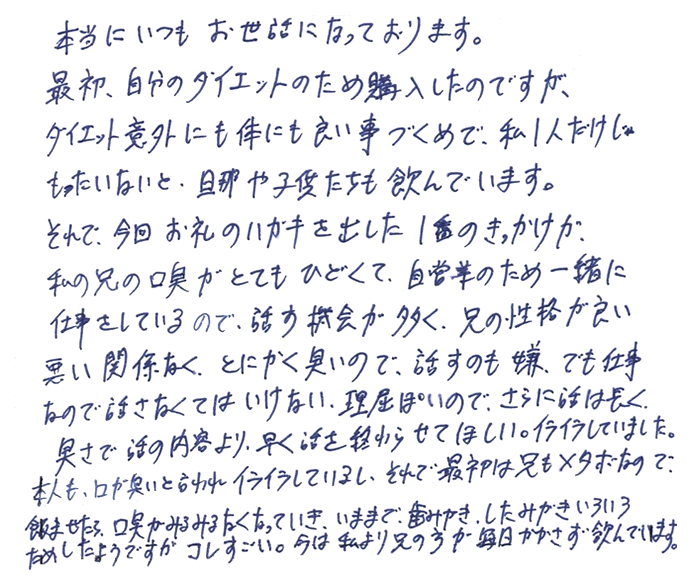 本当にいつも お世話になっております。
最初、自分のダイエットのため購入したのですが、
ダイエット意外にも体にも良い事づくめで、私1人だけじゃ
もったいないと、旦那や子供たちも飲んでいます。
それで、今回お礼のハガキを出した1番のきっかけが、
私の兄の口臭がとてもひどくて、自営業のため一緒に
仕事をしているので、話す機会が多く、兄の性格が良い
悪い関係なく、とにかく臭いので、話すのも嫌、でも仕事
なので話さなくてはいけない、理屈ぽいので、さらに話は長く、
臭さで話の内容より、早く話を終わらせてほしい。イライラしていました。
本人も、口が臭いと言われイライラしているし、それで最初は兄もメタボなので、
飲ませたら、口臭がみるみるなくなっていき、いままで、歯みがき、したみがきいろいろ
ためしたようですがコレすごい。今は私より兄の方が毎日かかさず飲んでいます。